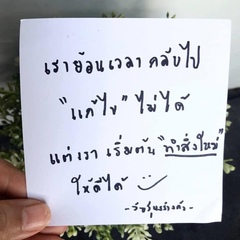 เราย้อนเวลา กลับไป
"แก้ไข" ไม่ได้
แต่เรา เริ่มต้น "ทำสิ่งใหม่"
ให้ดีได้